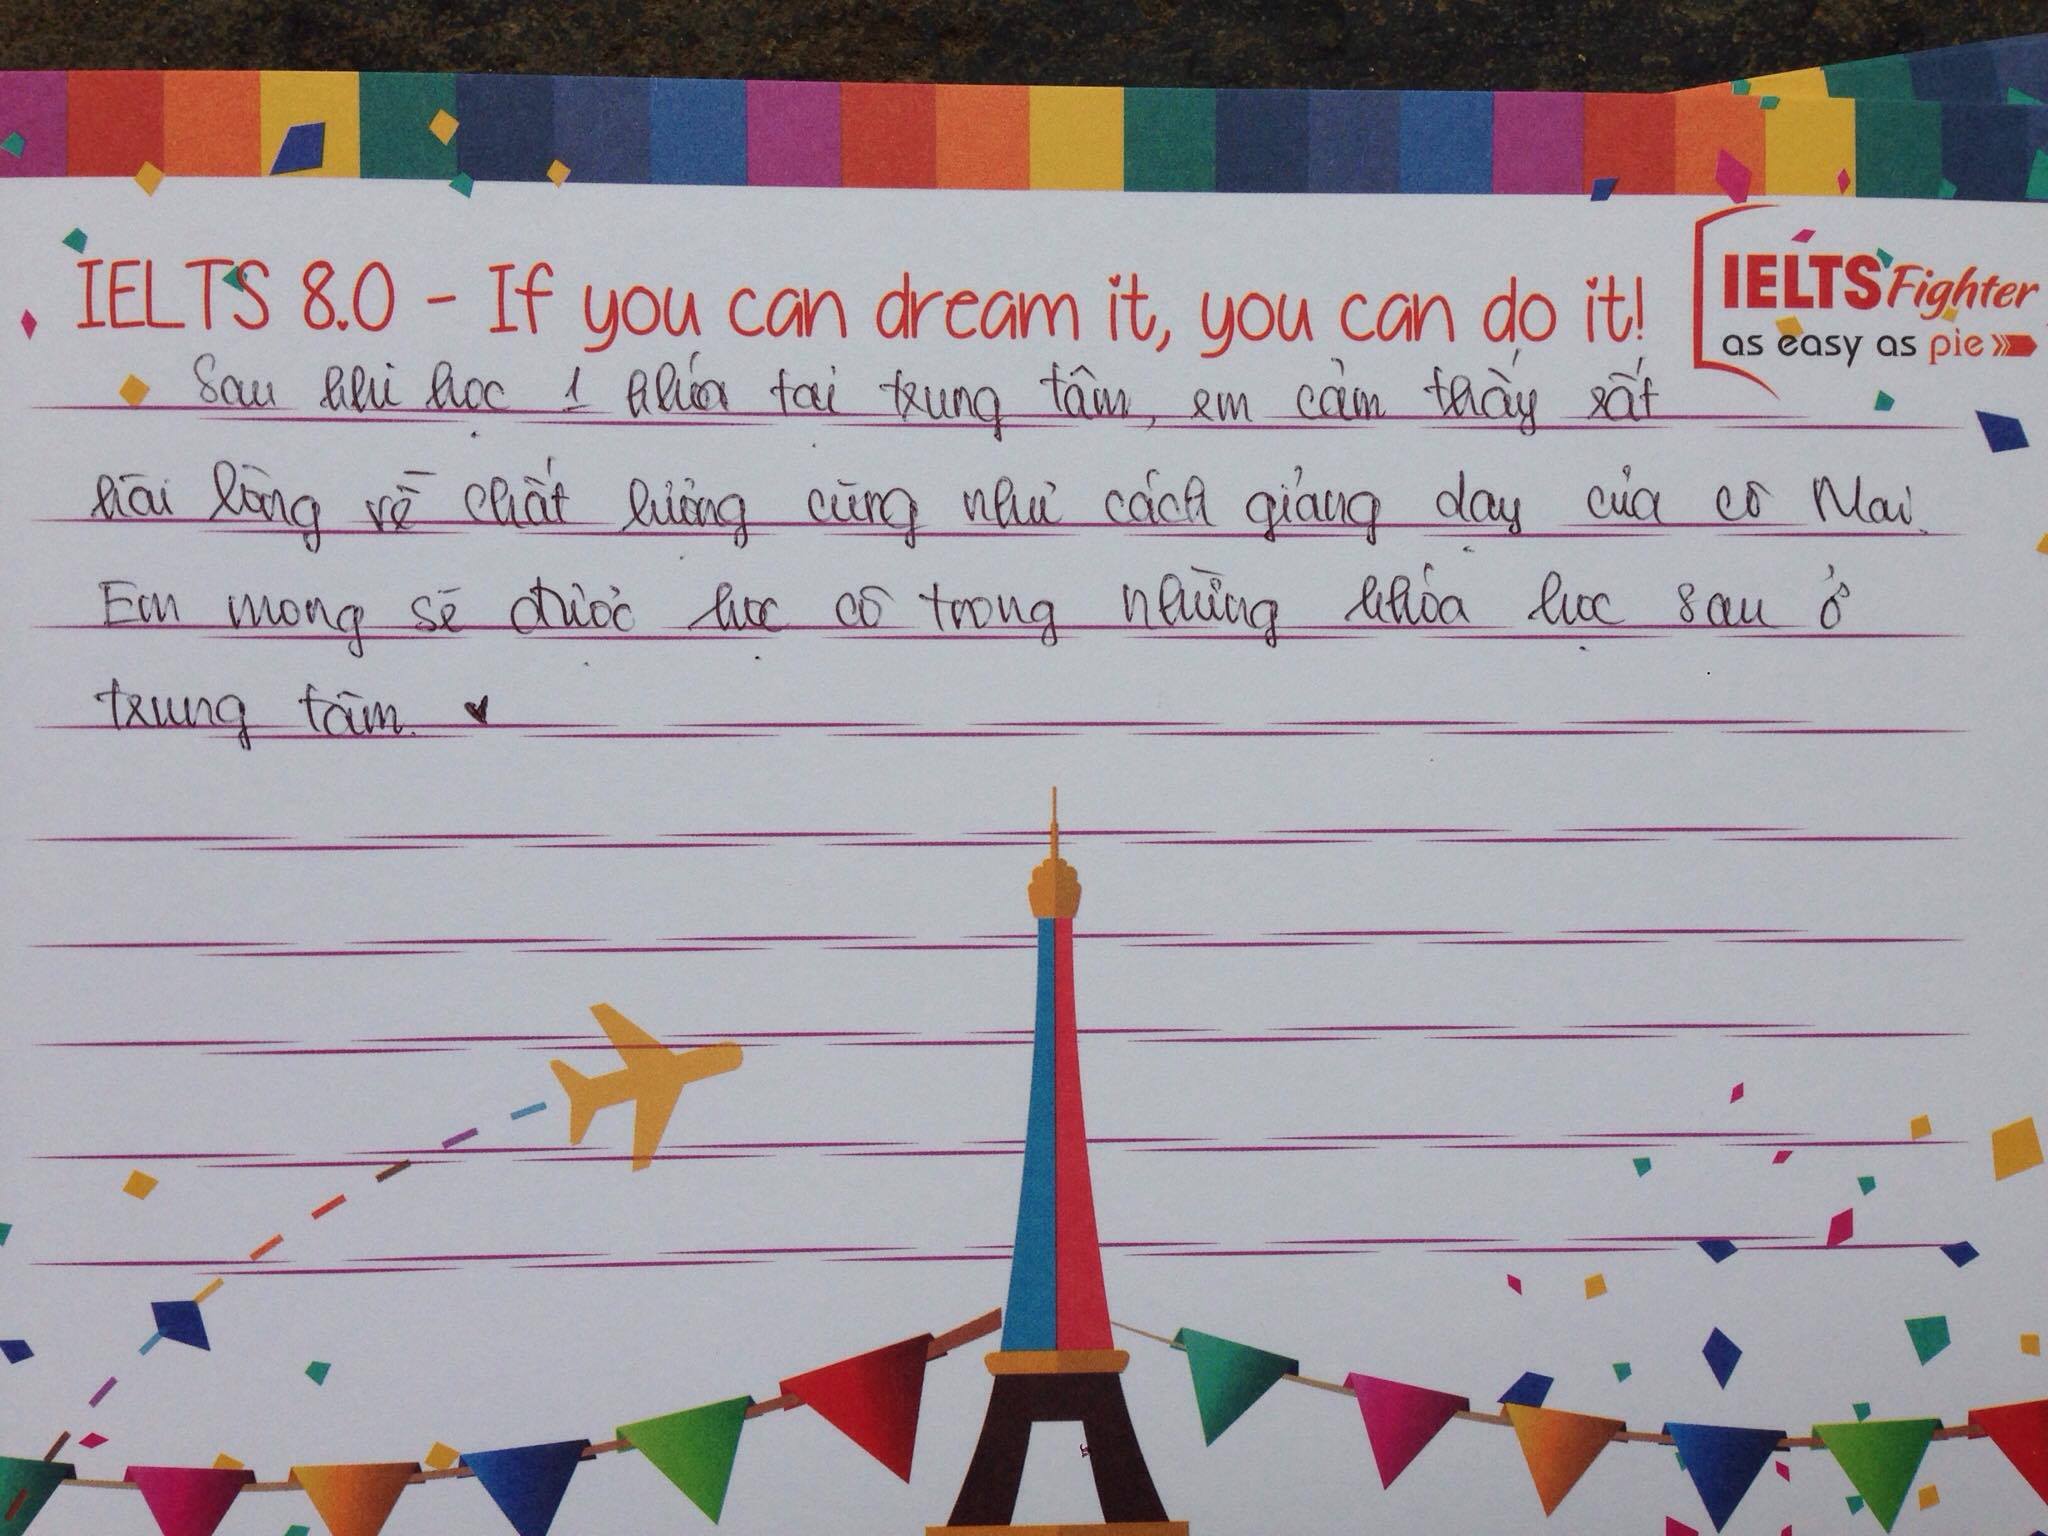 IELTS 8.0 - If you can dream it, you can do it!
IELTS Fighter
as easy as pie
Sau khi học 1 khóa tại trung tâm, em cảm thấy rất
hài lòng về chất lượng cũng như cách giảng dạy của cô Mai.
Em mong sẽ được học cô trong những khóa học sau ở
trung tâm. ♥